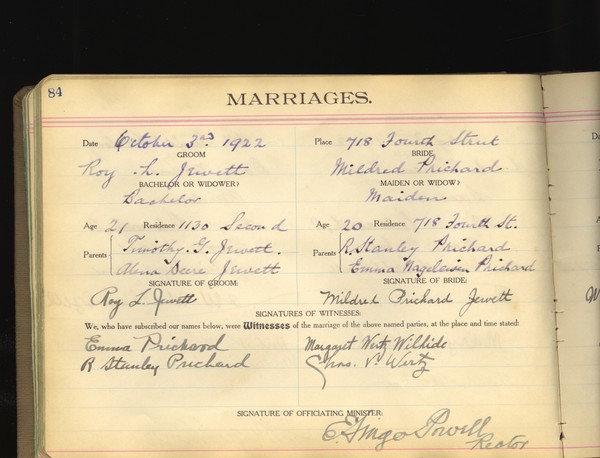 84
MARRIAGES.
Date October 3rd 1922 Place 718 Fourth Street
GROOM BRIDE
Roy L. Jewett Mildred Prichard
BACHELOR OR WIDOWER? MAIDEN OR WIDOW?
Bachelor Maiden
Age 21 Residence 1130 Second Age 20 Residence 718 Fourth St.
Parents Timothy G. Jewett. Parents R. Stanley Prichard
Alena Deere Jewett Emma Prichard
SIGNATURE OF GROOM: SIGNATURE OF BRIDE:
Roy L. Jewett Mildred Prichard Jewett
SIGNATURES OF WITNESSES:
We, who have subscribed our names below, were Witnesses of the marriage of the above named parties, at the place and time stated:
Emma Prichard Margaret Wertz Wilhide
R Stanley Prichard Chas. V. Wertz
SIGNATURE OF OFFICIATING MINISTER:
Powell
Rector